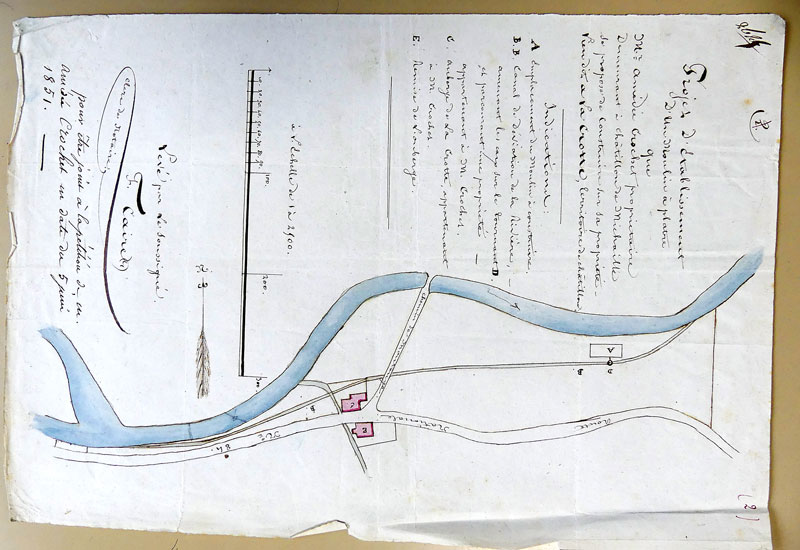 Projet D'Etablissement
D'Un Moulin à platre
que
Mr. Amédée Crochet propriétaire
Demeurant à châtillon de Michaille
Se propose de Construire sur sa propriété
La Crotte, territoire de châtillon
Indications:
A Emplacement du Moulin à construire,
B.B Canal de dérivation de la Rivière,
amenant les eaux sur le tournant D.
et parcourant, une propriété
appartenant à M Crochet.
C. Auberge de La Crotte, appartenant
à M Crochet
E. Remise de L'auberge.
à L'échelle de 1 à 2500.
100.
200.
300.
Levé par Le Soussigné,
F. Cairely
clerc de Notaire,
pour être joint à la pétition de m.
amédée Crochet en date du 5 juin
1851.
Route
Nationale
A
B
B
C
E
(2)